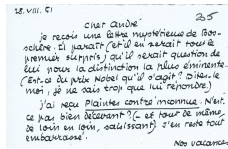 28.VIII.51
cher André
25
je reçois une lettre mystérieuse de Bos-
schère. Il paraît (et il en serait tout le
premier surpris) qu'il serait question de
lui pour la distinction la plus éminente.
(Est-ce du prix Nobel qu'il s'agit? Dites-le
moi, je ne sais trop que lui répondre.)
j'ai reçu Plaintes contre inconnue. N'est-
ce pas bien décevant? (- et tout de même,
de loin en loin, saisissant) j'en reste tout
embarrassé.
Nos vacances